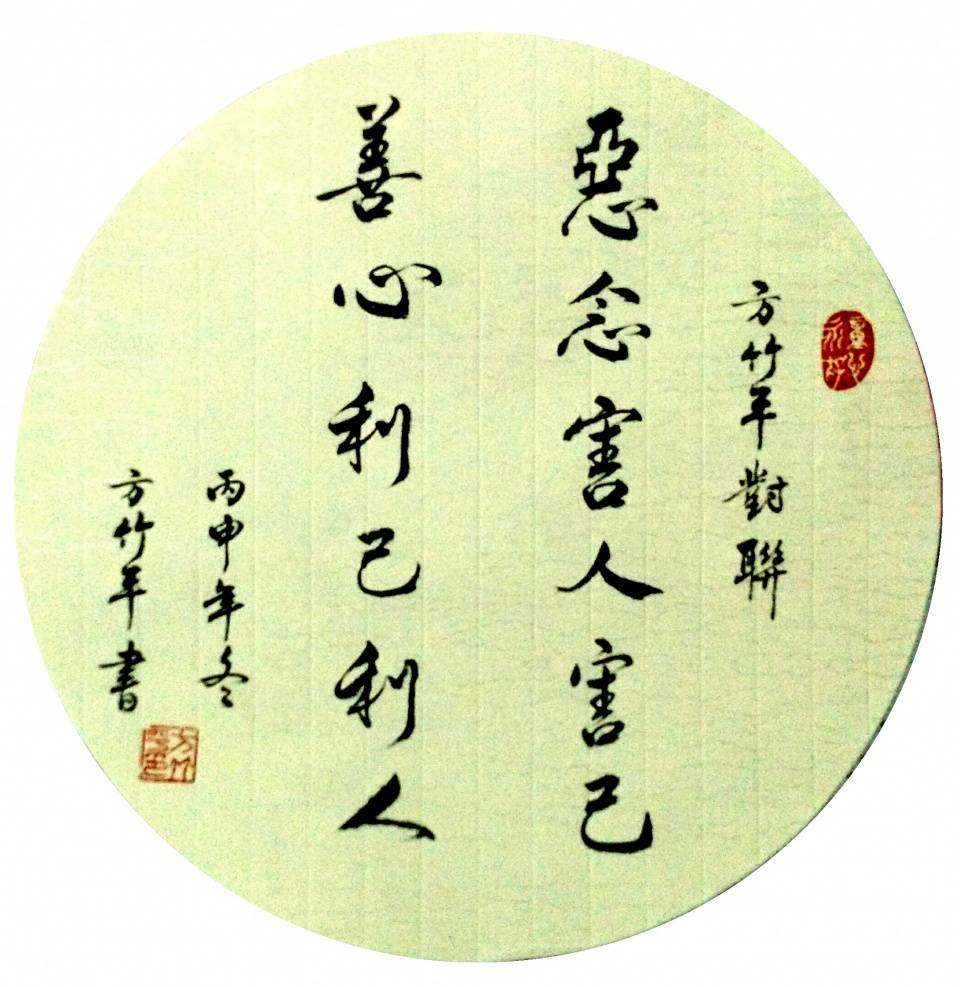 方竹年對聯
惡念害人害己
善心利己利人
丙申年冬
方竹年書